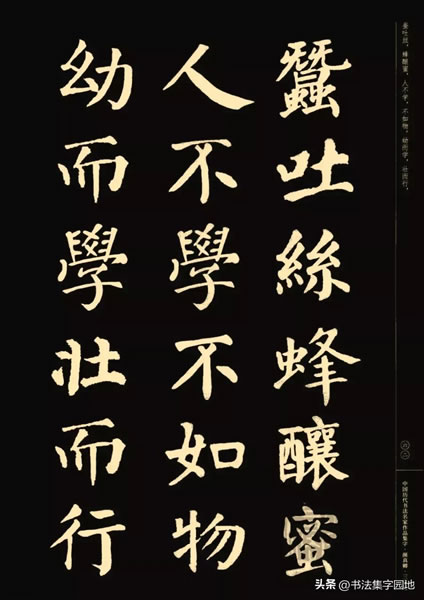 蠶吐絲蜂釀蜜
人不學不如物
幼而學壯而行
蚕吐丝，蜂酿蜜。人不学，不如物。幼而学，壮而行。
中国历代书法名家作品集字·
头条 @书法集字园地